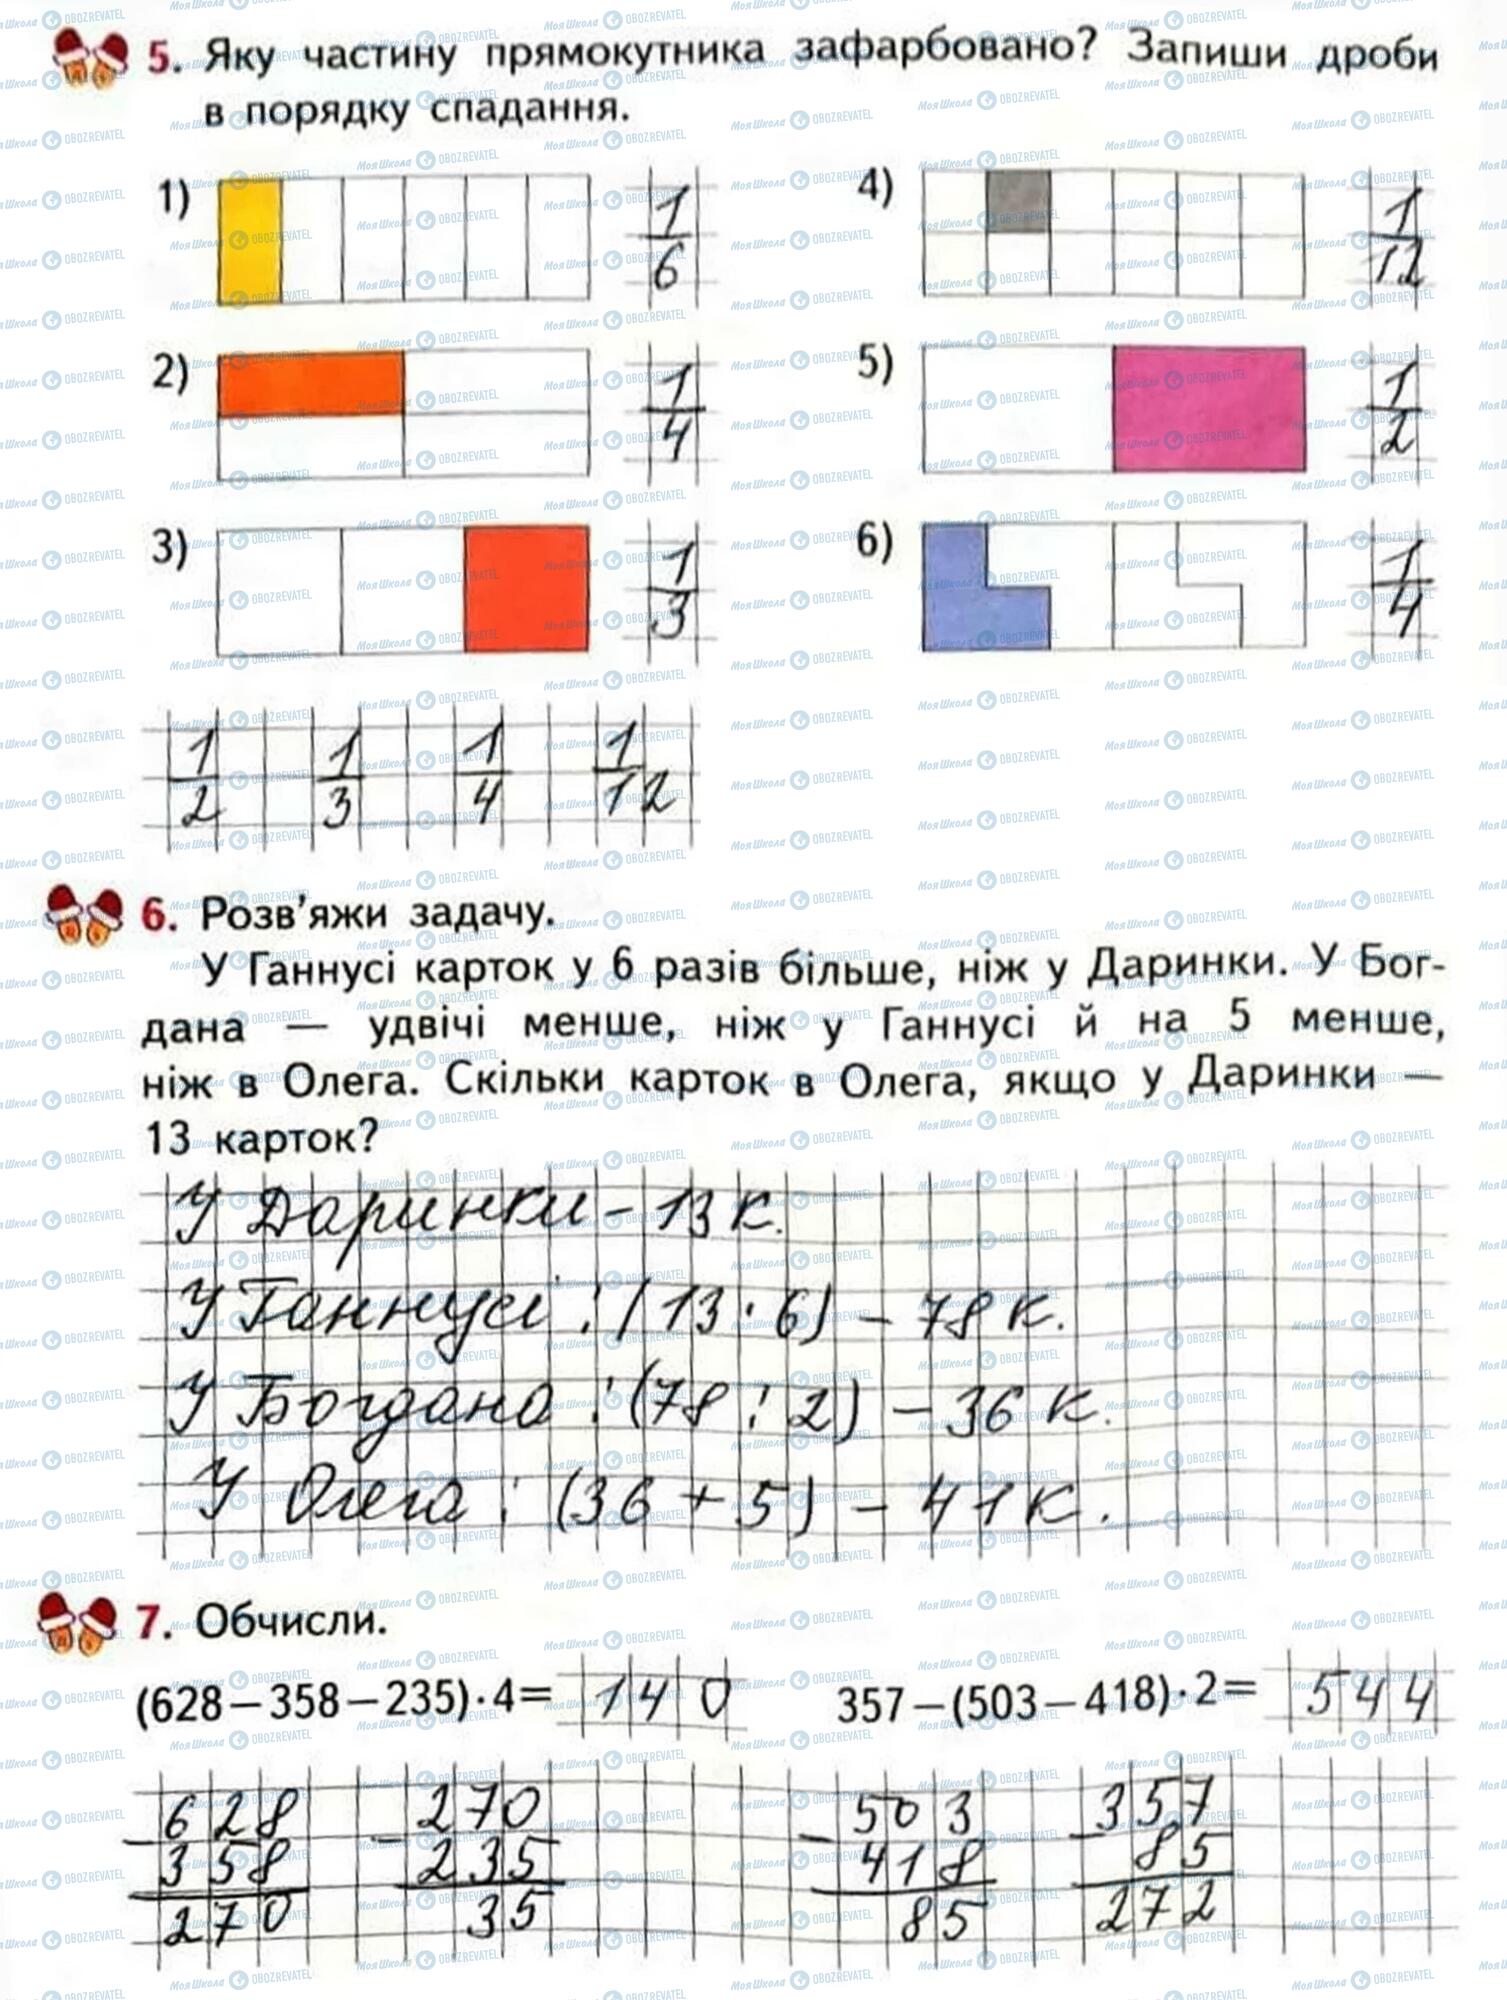 5. Яку частину прямокутника зафарбовано? Запиши дроби
в порядку спадання.
1) 1/6
4) 1/12
2) 1/4
5) 1/2
3) 1/3
6) 1/4
1/2 1/3 1/4 1/12
6. Розв'яжи задачу.
У Ганнусі карток у 6 разів більше, ніж у Даринки. У Бог-
дана — удвічі менше, ніж у Ганнусі й на 5 менше,
ніж в Олега. Скільки карток в Олега, якщо у Даринки —
13 карток?
У Даринки – 13 к.
У Ганнусі : (13 · 6) – 78 к.
У Богдана : (78 : 2) – 36 к.
У Олега : (36 + 5) – 41 к.
7. Обчисли.
(628−358−235)·4= 140
357−(503−418)·2= 544
628 270 503 357
− 358 − 235 − 418 − 85
270 35 85 272
МояШкола OBOZREVATEL